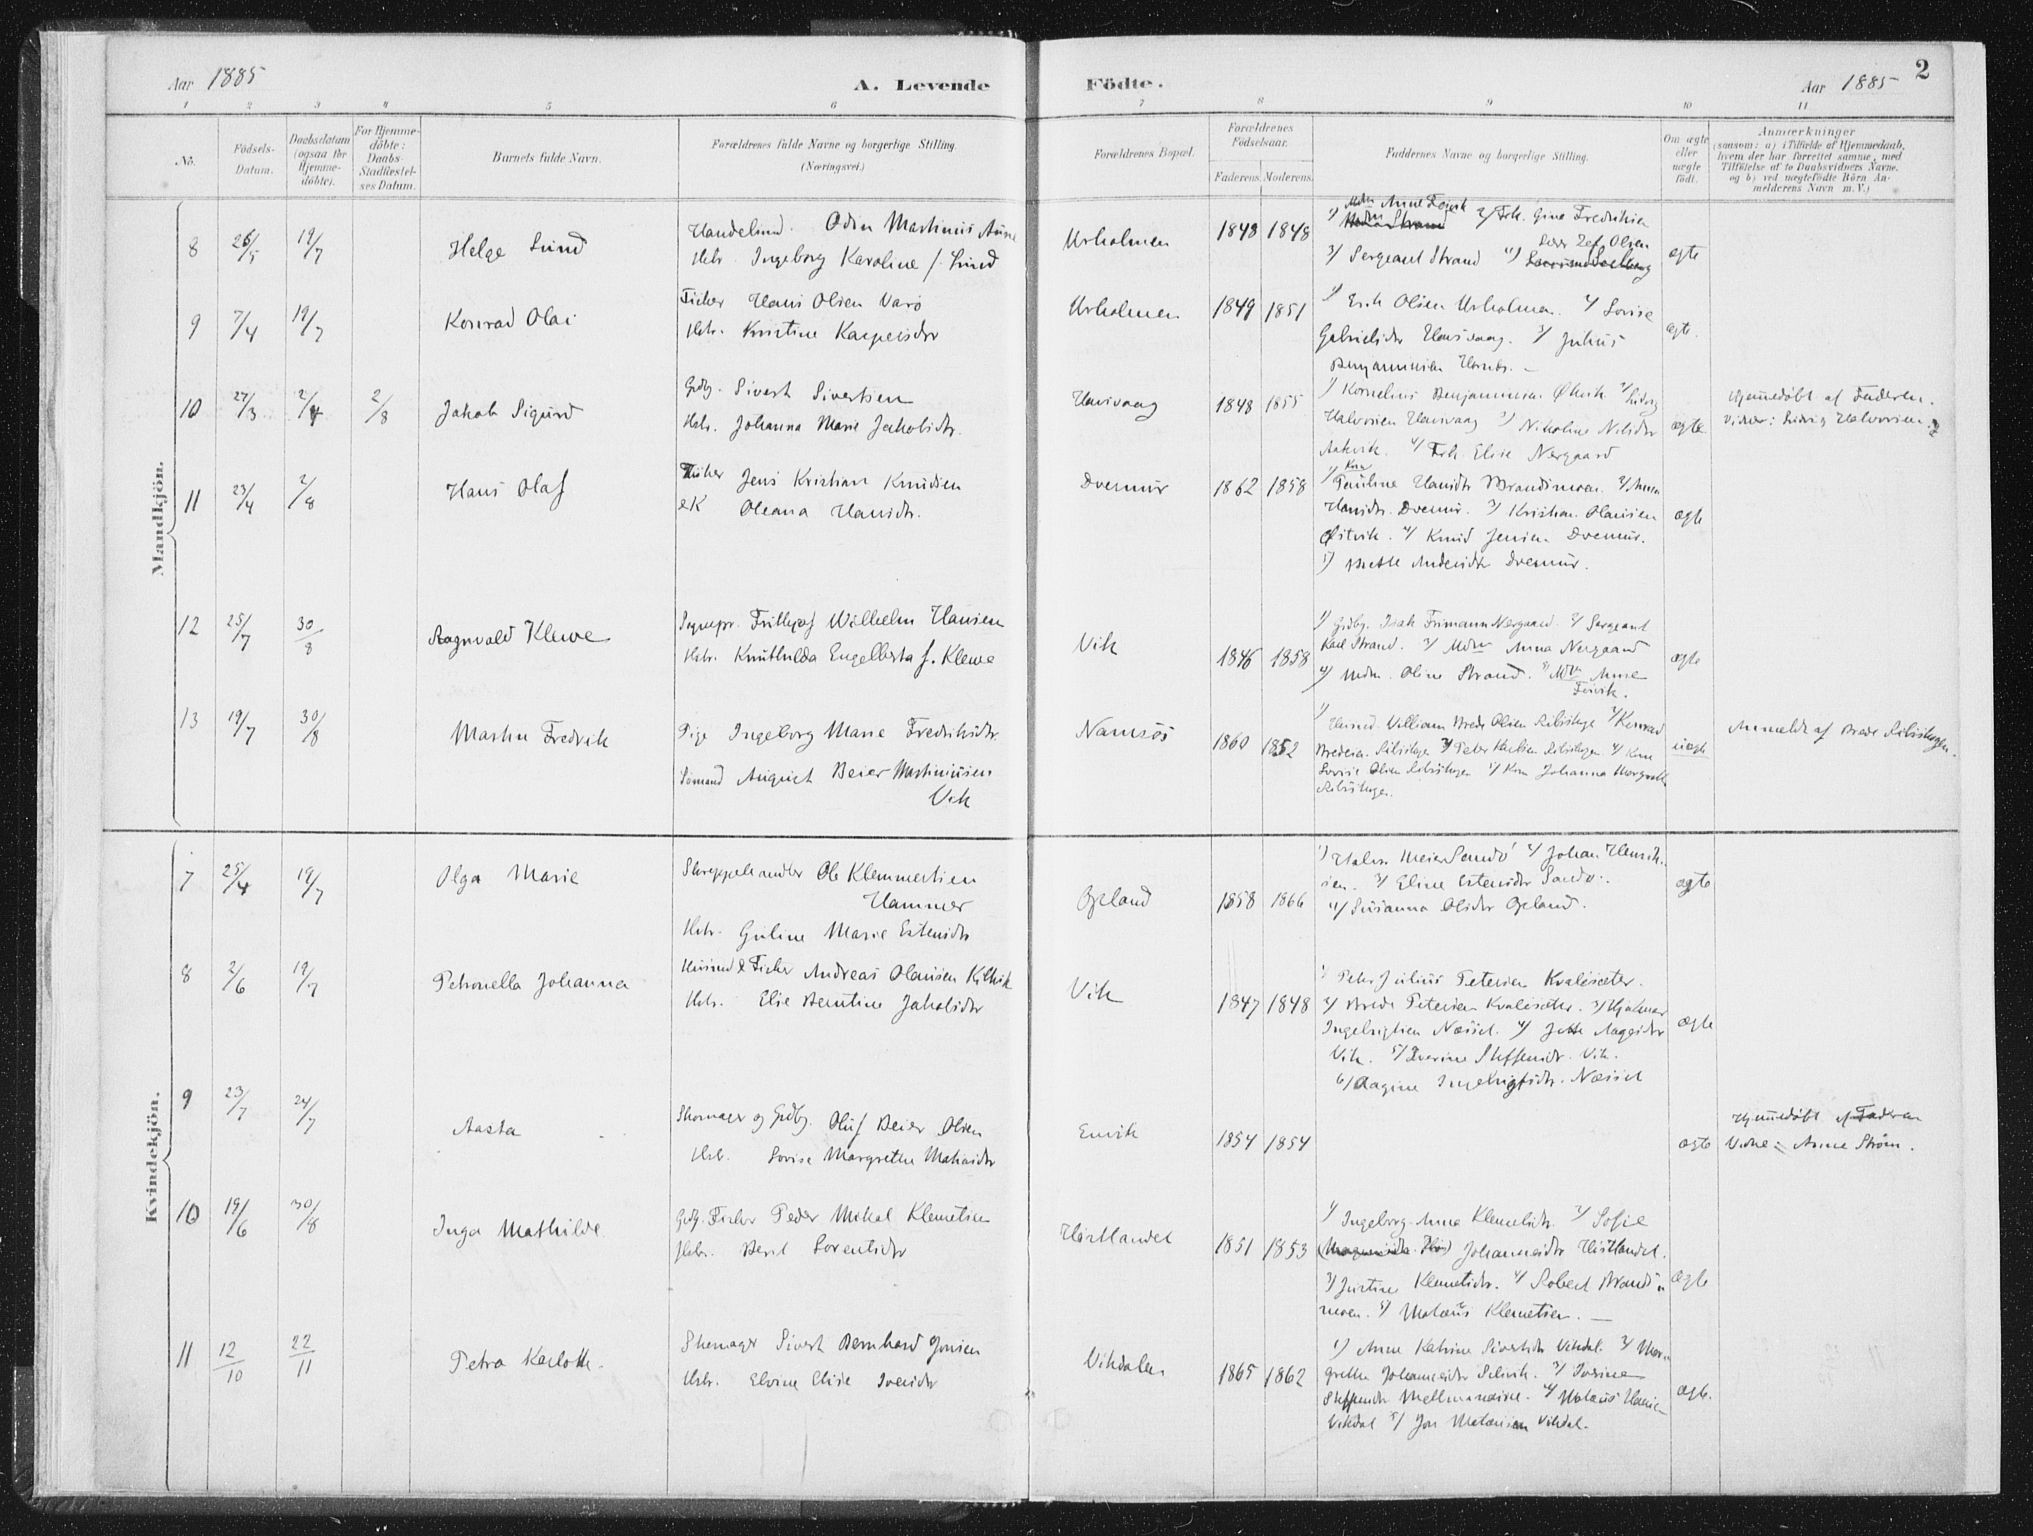 Aar 1885
A. Levende
Födte.
Aar 1885
2
1 2 3 4 5 6 7 8 9 10 11
No.
Födsels-
Datum.
Daabsdatum
(ogsaa for
Hjemme-
döbte).
For Hjemme-
döbte:
Daabs-
Stadfæstel-
ses Datum.
Barnets fulde Navn.
Forældrenes fulde Navne og borgerlige Stilling.
(Næringsvei.)
Forældrenes Bopæl.
Forældrenes
Födselsaar.
Faderens. Moderens.
Faddernes Navne og borgerlige Stilling.
Om ægte
eller
uægte
födt.
Anmærkninger
(saasom: a) i Tilfælde af Hjemmedaab,
hvem der har forrettet samme, med
Tilföielse af to Daabsvidners Navne.
og b) ved uægtefödte Börn An-
melderens Navn m. V.)
Mandkjön.
8 26/5 19/7 Helge Lund
Handelsmd. Odin Martinus Aune
Hstr. Ingeborg Karoline f. Lund
Urholmen 1848 1848
Mdm Anne Feisvik
1) 2) Frk. Gine Fredriksen
Olsen
3/ Sergeant Strand 4)
ægte
9 7/4 19/7 Konrad Olai
Fisker Hans Olsen Varø
Hstr. Kristine Kaspersdtr
Urholmen 1849 1851
1/ Erik Olsen Urholmen. 2/ Lovise
Gabrielsdtr Hansvaag. 3/ Julius
Benjaminsen
ægte.
10 27/3 2/4 2/8 Jakob Sigurd
Grdbg. Sivert Sivertsen
Hstr. Johanna Marie Jakobsdtr.
Hansvaag 1848 1855
1/ Kornelius Benjaminsen Økvik 2/ Ludvig
Halvorsen Hansvaag 3/ Nikoline Nilsdtr
Aakvik. 4/ Frk. Elise Nergaard
ægte
Hjemmedøbt af Faderen.
Vidner: Ludvig Halvorsen.
11 23/4 2/8 Hans Olaf
Fisker Jens Kristian Knudsen
e K Oleana Hansdtr.
Dvemur 1862 1858
Kone
1/ Pauline Hansdtr Brandsmoen. 2/ Anna
Hansdtr. Dvemur. 3/ Kristian Olausen
Øitvik. 4/ Knud Jensen Dvemur.
5) Mette Andersdtr Dvemur.
ægte
12 25/7 30/8 Ragnvald Klewe
Sognepr. Frithjof Wilhelm Hansen
Hstr. Knuthilda Engelberta f. Klewe
Vik 1846 1858
1/ Grdbg. Isak Frimann Nergaard. 2/ Sergeant
Karl Strand. 3/ Mdm Anna Nergaard
4/ Mdm. Oline Strand. 5/ Mdm Anne
Feisvik.
ægte
13 19/7 30/8 Martin Fredrik
Pige Ingeborg Marie Fredriksdtr.
Sømand August Beier Martiniusen
Vik
Namsøs 1860 1852
1/ Husmd. William Brede Olsen Ribsskoge 2/ Konrad
Bredesen Ribsskogen 3/ Peter Ribsskogen 4/ Kone
Lovise Olsen Ribsskogen 5/ Kone Johanna
Ribsskogen.
uægte
Anmeldt af Brede Ribsskogen.
Kvindekjön.
7 25/4 19/7 Olga Marie
Skreppehandler Ole Klemmertsen
Hammer
Hstr. Guline Marie Estensdtr
Opland 1858 1866
1) Halvor Meier Sandø 2/ Johan Henrik-
sen. 3/ Eline Estensdtr Sandø.
4/ Susanna Olsdtr Opland.
ægte
8 2/6 19/7 Petronella Johanna
Husmd & Fisker Andreas Olausen Kilvik
Hstr. Elie Berntine Jakobsdtr
Vik 1847 1848
1/ Peter Julius Petersen Kvalesæter.
2/ Brede Petersen Kvalesæter. 3/ Hjalmar
Ingebrigtsen Næsset. 4/ Jette Aagesdtr
Vik. 5/ Iverine Steffensdtr. Vik.
6/ Ragine Ingebrigtsdtr. Næsset
ægte
9 23/7 24/7 Aasta
Skomager og Grdbg. Oluf Beier Olsen
Hstr. Lovise Margrethe Matiasdtr
Emvik 1854 1854
ægte
Hjemmedøbt af Faderen
Vidne: Anne Strøm.
10 19/6 30/8 Inga Mathilde
Grdbg. Fisker Peder Mikal Klemetsen
Hstr. Berit Lorentsdtr
Hestlandet 1851 1853
1/ Ingeborg Anna Klemetsdtr. 2/ Sofie
Johannesdtr Hestlandet.
3/ Justine Klemetsdtr. 4/ Robert Brands-
moen. 5/ Mataus Klemetsen.
ægte
11 12/10 22/11 Petra Karlotte
Skomager Sivert Bernhard Jonsen
Hstr. Elvine Elise Iversdtr
Vikdalen 1865 1862
1) Anne Katrine Sivertsdtr Vikdal. 2/ Mar-
grethe Johannesdtr Selvik. 3/ Iverine
Steffensdtr Mellmanæsset. 4/ Mataus Hansen
Vikdal 5/ Jon Matausen Vikdal.
ægte.